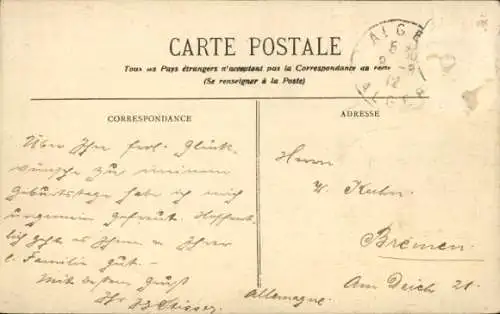 CARTE POSTALE
Tous les Pays étrangers n'acceptent pas la Correspondance au recto
(Se renseigner à la Poste)
ALGER
ALGER
CORRESPONDANCE
ADRESSE
Über Ihre frdl. Glück-
wünsche zu meinem
Geburtstage habe ich mich
ungemein gefreut. Hoffent-
lich geht es Ihnen u Ihrer
l. Familie gut. -
Mit besten Gruß
Ihr
Herrn
W. Kuhn.
Bremen
Am Deich 21.
Allemagne.